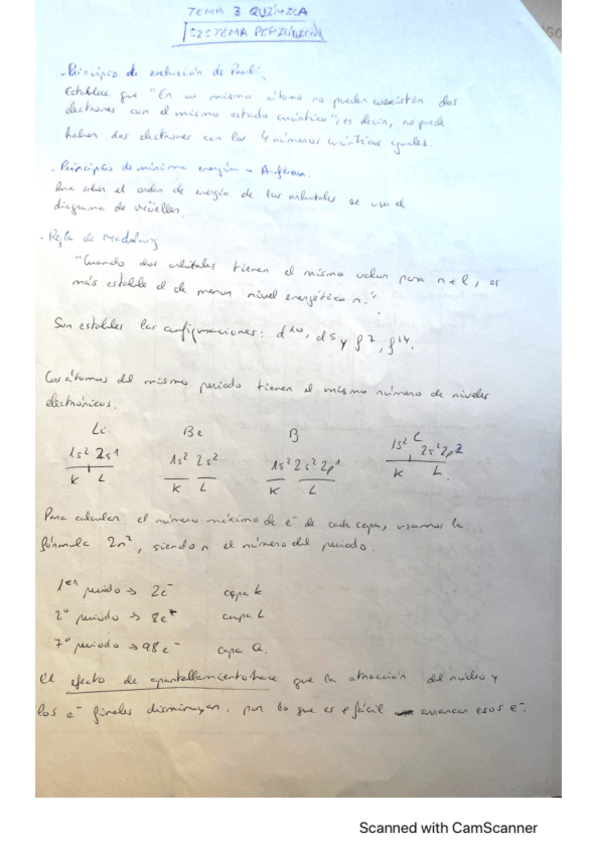 TEMA 3 QUÍMICA
SISTEMA PERIÓDICO
- Principio de exclusión de Pauli.
Establece que "En un mismo átomo no pueden coexistir dos
electrones con el mismo estado cuántico", es decir, no puede
haber dos electrones con los 4 números cuánticos iguales.
- Principio de mínima energía - Aufbau.
Para saber el orden de energía de los orbitales se usa el
diagrama de Möeller.
- Regla de Madelung
"Cuando dos orbitales tienen el mismo valor para n + l, es
más estable el de menor nivel energético n."
Son estables las configuraciones: d¹⁰, d⁵ y f⁷, f¹⁴.
Los átomos del mismo periodo tienen el mismo número de niveles
electrónicos.
Li Be B C
1s² 2s¹ 1s² 2s² 1s² 2s² 2p¹ 1s² 2s² 2p²
K L K L K L K L
Para calcular el número máximo de e⁻ de cada capa, usamos la
fórmula 2n², siendo n el número del periodo.
1er periodo → 2e⁻ capa K
2º periodo → 8e⁻ capa L
7º periodo → 98e⁻ capa Q.
El efecto de apantallamiento hace que la atracción del núcleo y
los e⁻ finales disminuyan. por lo que es fácil arrancar esos e⁻.
Scanned with CamScanner